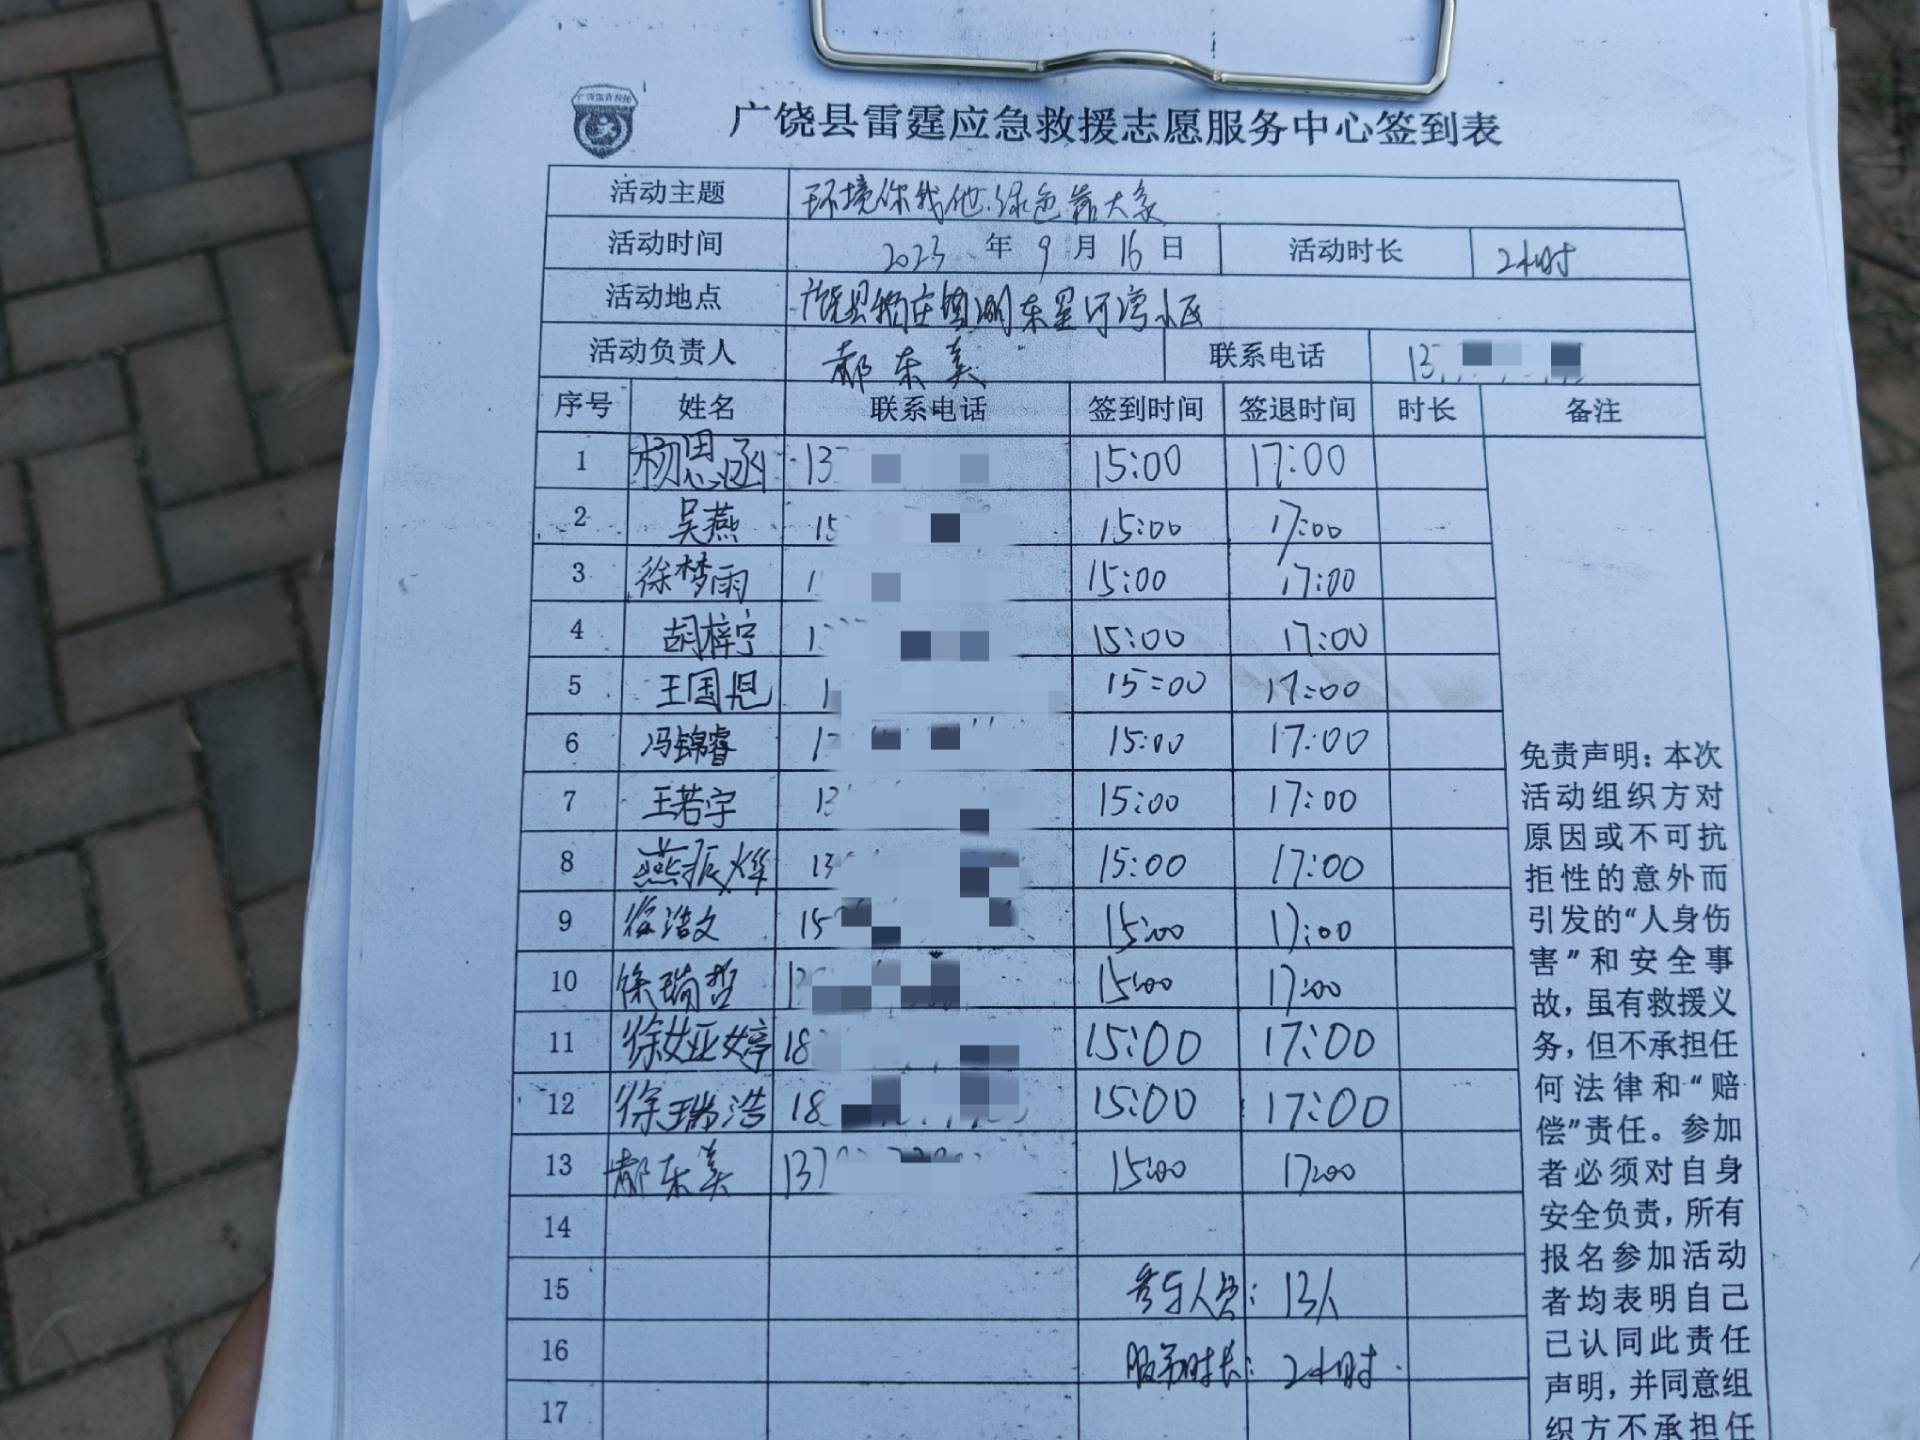 广饶县雷霆应急救援志愿服务中心签到表
活动主题 环境你我他.绿色靠大家
活动时间 2023 年 9 月 16 日 活动时长 2小时
活动地点 广饶县稻庄镇湖东星河湾小区
活动负责人 郝东美 联系电话 13
序号 姓名 联系电话 签到时间 签退时间 时长 备注
1 杨思涵 13 15:00 17:00
2 吴燕 15 15:00 17:00
3 徐梦雨 1 15:00 17:00
4 胡梓宁 1 15:00 17:00
5 王国 1 15:00 17:00
6 冯锦睿 1 15:00 17:00
7 王若宇 13 15:00 17:00
8 燕振烨 13 15:00 17:00
9 徐浩文 15 15:00 17:00
10 徐瑞哲 1 15:00 17:00
11 徐娅婷 18 15:00 17:00
12 徐瑞浩 18 15:00 17:00
13 郝东美 137 15:00 17:00
14
15 参与人员: 13人
16 服务时长: 2小时.
17
免责声明：本次
活动组织方对
原因或不可抗
拒性的意外而
引发的“人身伤
害”和安全事
故，虽有救援义
务，但不承担任
何法律和“赔
偿”责任。参加
者必须对自身
安全负责，所有
报名参加活动
者均表明自己
已认同此责任
声明，并同意组
织方不承担任